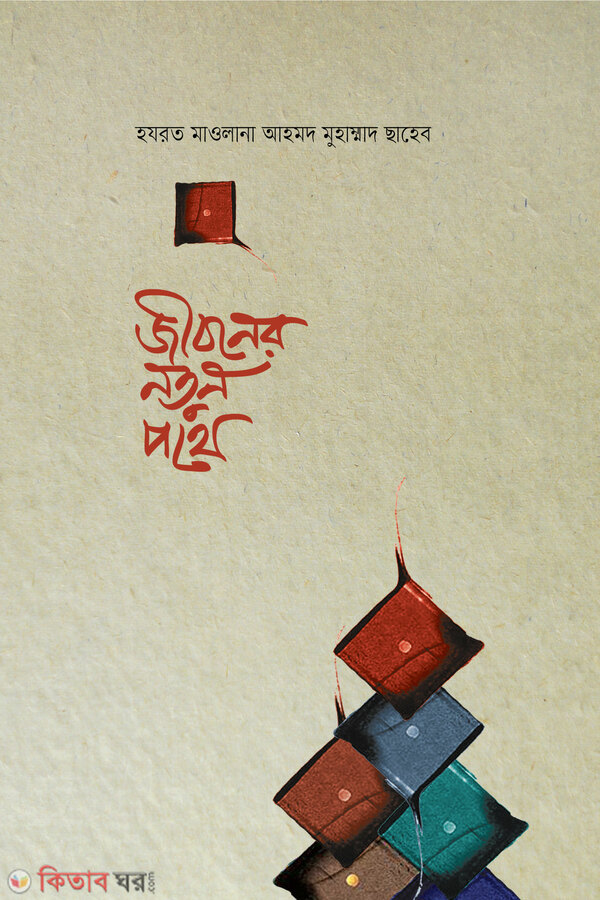 হযরত মাওলানা আহমদ মুহাম্মাদ ছাহেব
জীবনের
নতুন
পথে
কিতাব ঘর.com